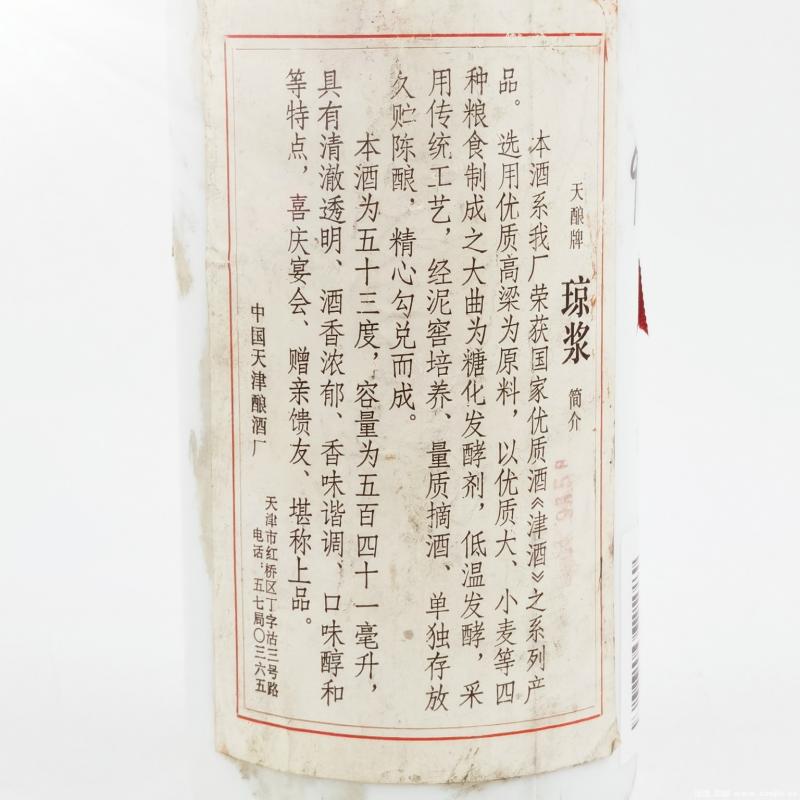 天酿牌 琼浆 简介
本酒系我厂荣获国家优质酒《津酒》之系列产
品。
选用优质高梁为原料，以优质大、小麦等四
种粮食制成之大曲为糖化发酵剂，低温发酵，采
用传统工艺，经泥窖培养、量质摘酒、单独存放
久贮陈酿，精心勾兑而成。
本酒为五十三度，容量为五百四十一毫升，
具有清澈透明、酒香浓郁、香味谐调、口味醇和
等特点，喜庆宴会、赠亲馈友、堪称上品。
中国天津酿酒厂
天津市红桥区丁字沽三号路
电话：五七局〇三六五